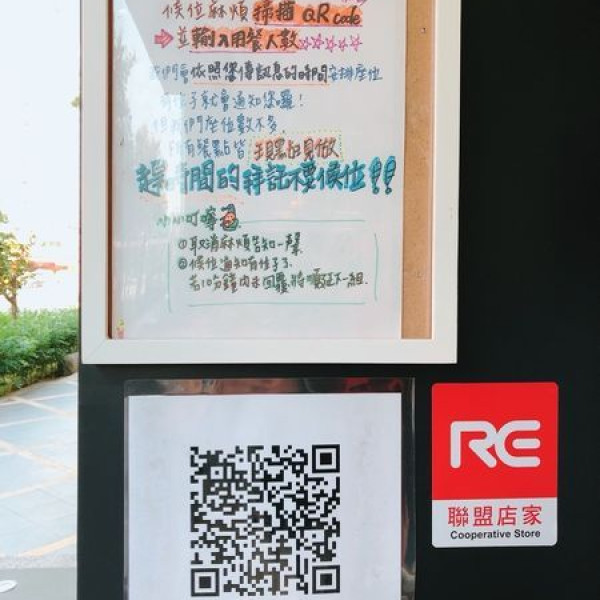 候位麻煩掃描 QR code
⇨並輸入用餐人數☆☆☆☆☆
我們會依照您傳訊息的時間安排座位
有位子就會通知您囉！
但我們座位數不多，
所有餐點皆現點現做
趕時間的拜託不要候位!!
小小叮嚀
①取消麻煩告知一聲
②候位通知有位子了，
若10分鐘內未回覆，將順延下一組.
RE
聯盟店家
Cooperative Store